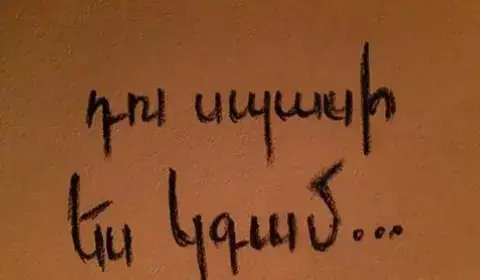 դու սպասի
ես կգամ...